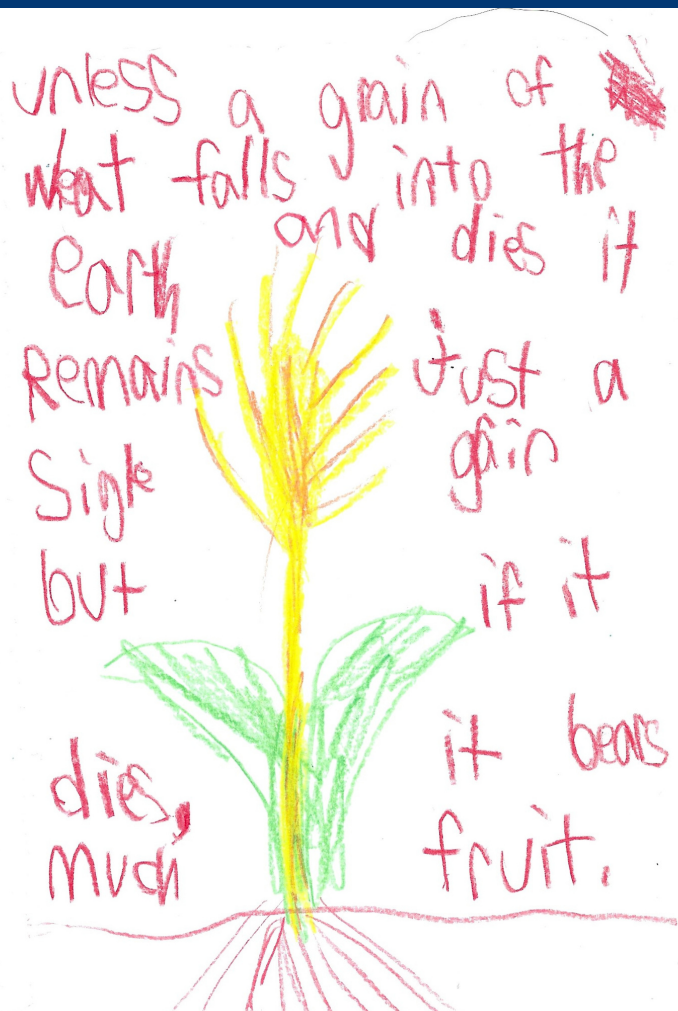 unless a grain of
wheat falls into the
earth and dies it
Remains Just a
Single grain
but if it
dies, it bears
much fruit.